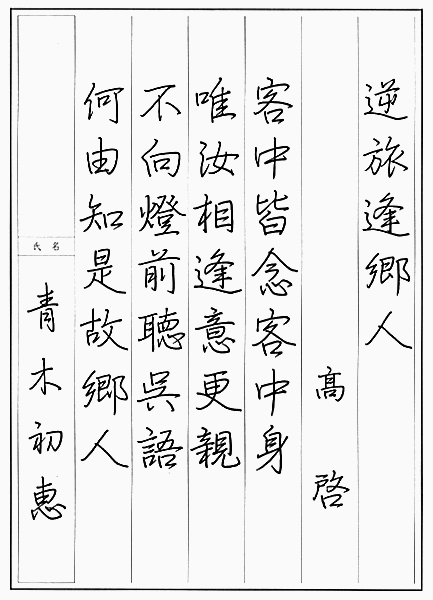 逆旅逢郷人
高啓
客中皆念客中身
唯汝相逢意更親
不向燈前聴呉語
何由知是故郷人
氏名
青木初恵